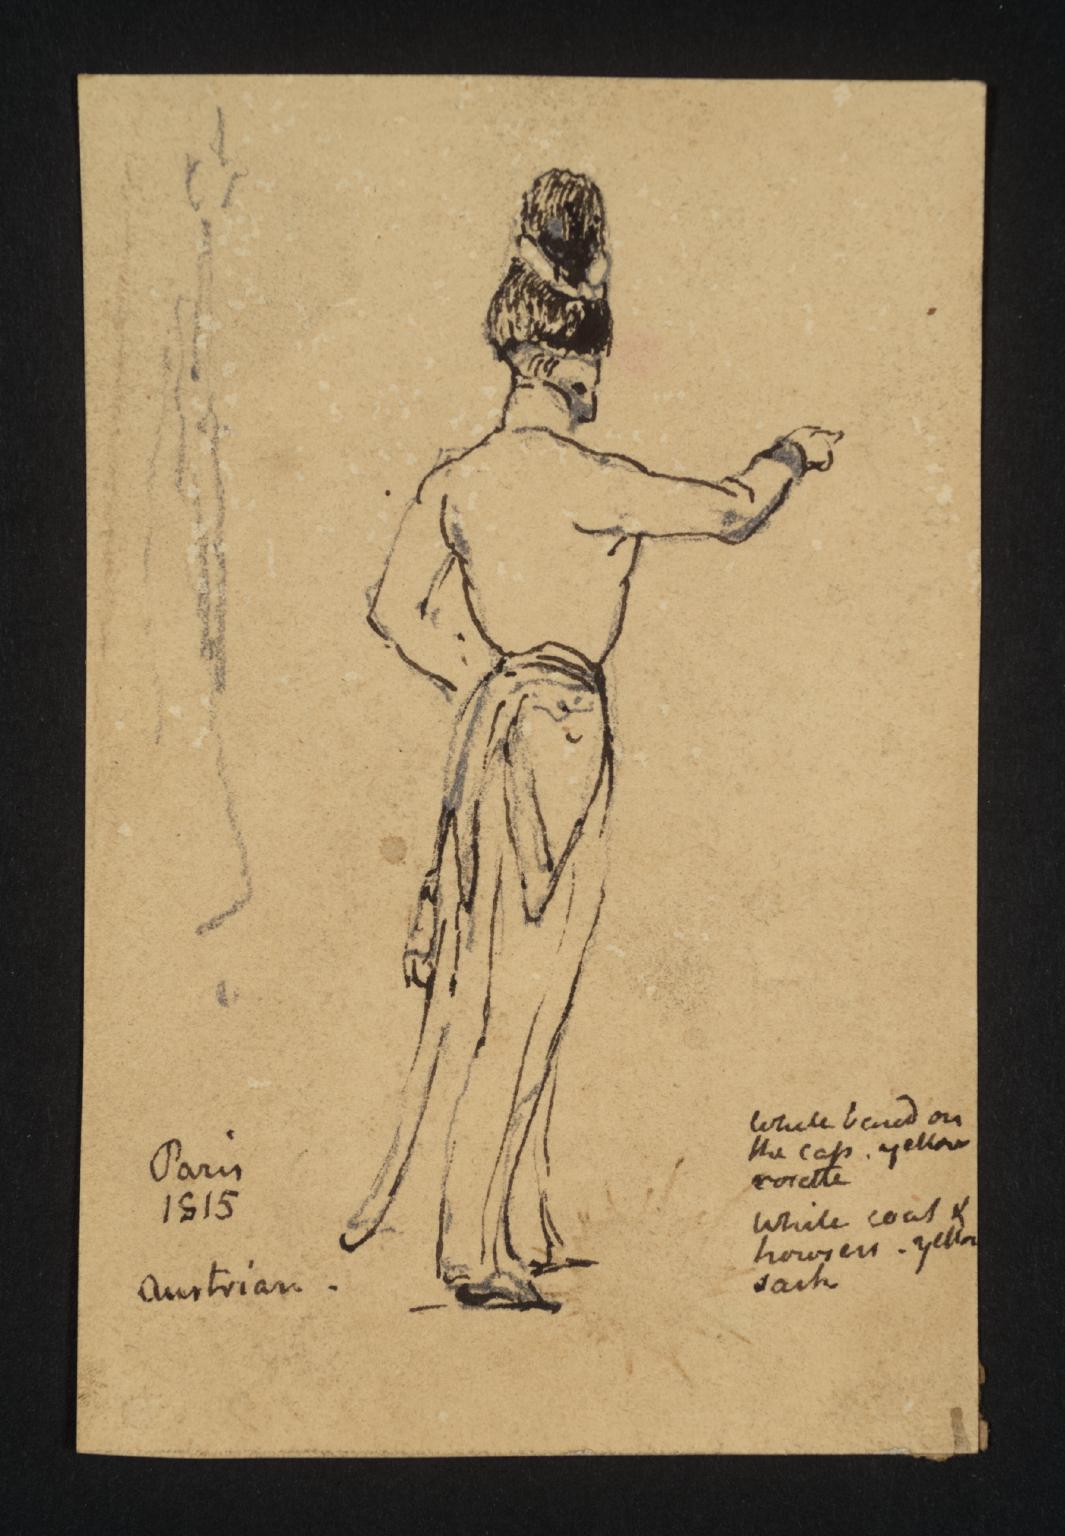 Paris
1815
Austrian -
White band on
the cap. yellow
rosette
White coat &
trowsers - yellow
sash